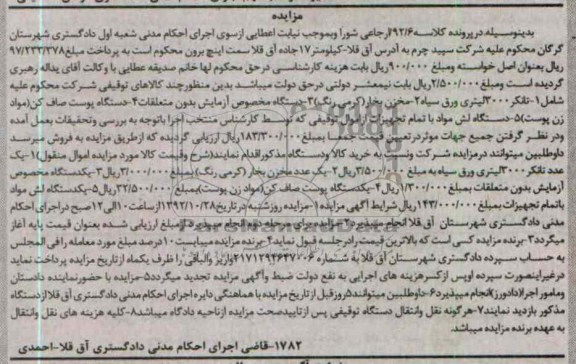 مزایده
بدینوسیله در پرونده کلاسه ۲۹۲/۶ ارجاعی شورا وبموجب نیابت اعطایی ازسوی اجرای احکام مدنی شعبه اول دادگستری شهرستان
گرگان محکوم علیه شرکت سپید چرم به آدرس آق قلا-کیلومتر۱۷جاده آق قلا سمت اینچ برون محکوم است به پرداخت مبلغ۹۷/۲۳۳/۳۷۸
ریال بعنوان اصل خواسته ومبلغ ۹۰۰/۰۰۰ریال بابت هزینه کارشناسی درحق محکوم لها خانم صدیقه عطایی با وکالت آقای یداله رهبری
گردیده است ومبلغ ۲/۵۰۰/۰۰۰ریال بابت نیمعشر دولتی درحق دولت میباشد بدین منظورچند کالاهای توقیفی شرکت محکوم علیه
شامل ۱-تانکر۳۰۰۰لیتری ورق سیاه۲-مخزن بخار(کرمی رنگ)۳-دستگاه مخصوص آزمایش بدون متعلقات۴-دستگاه پوست صاف کن(مواد
زن پوست)۵-دستگاه لش مواد با تمام تجهیزات ازاموال توقیفی که توسط کارشناس منتخب اجرا باتوجه به بررسی وتحقیقات بعمل آمده
ودر نظر گرفتن جمیع جهات موثردرتعیین قیمت جمعا بمبلغ۱۸۳/۳۰۰/۰۰۰ریال ارزیابی گردیده که ازطریق مزایده به فروش میرسد
داوطلبین میتوانند درمزایده شرکت ونسبت به خرید کالا ودستگاه مذکوراقدام نمایند(شرح وقیمت کالا مورد مزایده اموال منقول)۱-یک
عدد تانکر۳۰۰۰لیتری ورق سیاه به مبلغ ۳/۵۰۰/۰۰۰ریال۲-یک عدد مخزن بخار (کرمی رنگ)بمبلغ۳/۰۰۰/۰۰۰ریال۳-یکدستگاه مخصوص
آزمایش بدون متعلقات بمبلغ۱/۳۰۰/۰۰۰ریال۴-یکدستگاه پوست صاف کن(مواد زن پوست)بمبلغ۳۲/۵۰۰/۰۰۰ریال۵-یکدستگاه لش مواد
باتمام تجهیزات بمبلغ۱۴۳/۰۰۰/۰۰۰ریال شرایط آگهی مزایده۱-مزایده روزشنبه در تاریخ۱۳۹۲/۱۰/۲۸ازساعت۱۰الی۱۲صبح دراجرای احکام
مدنی دادگستری شهرستان آق قلا انجام میپذیرد۲-مزایده برای
مبلغ ارزیابی شده بعنوان قیمت پایه آغاز
میگردد۳-برنده مزایده کسی است که بالاترین قیمت رادرجلسه قبول نماید۴-برنده مزایده میبایست۱۰درصد مبلغ مورد معامله را فی المجلس
به حساب سپرده دادگستری شهرستان آق قلا به شماره ۲۱۷۱۲۹۴۶۴۷۰۰۶واریز والباقی را ظرف یکماه ازتاریخ مزایده پرداخت نماید
درغیراینصورت سپرده اوپس ازکسرهزینه های اجرایی به نفع دولت ضبط وآگهی مزایده تجدید میگردد۵-مزایده با حضورنماینده دادستان
ومامور اجرا(دادورز)انجام میپذیرد۶-داوطلبین میتوانند۵روزقبل ازتاریخ مزایده باهماهنگی دایره اجرای احکام مدنی دادگستری آق قلا ازدستگاه
مذکور بازدید نمایند۷-هرگونه نقل وانتقال دستگاه توقیفی پس ازتاییدصحت مزایده ازناحیه دادگاه میباشد۸-کلیه هزینه های نقل وانتقال
به عهده برنده مزایده میباشد.
۱۷۸۲-قاضی اجرای احکام مدنی دادگستری آق قلا-احمدی